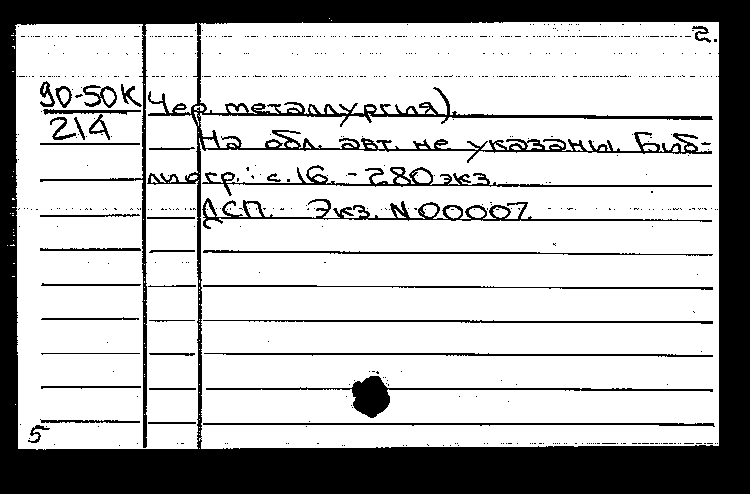 2.
90-50К Чер. металлургия).
214 На обл. авт. не указаны. Биб-
лиогр.: с.16. - 280 экз.
ДСП. Экз. N 00007.
5